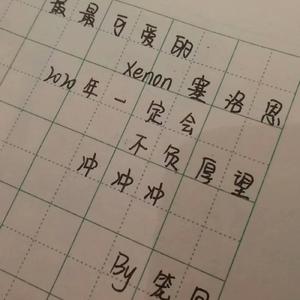 最最可爱的
Xenon塞洛恩
2020年一定会
不负厚望
冲冲冲
By